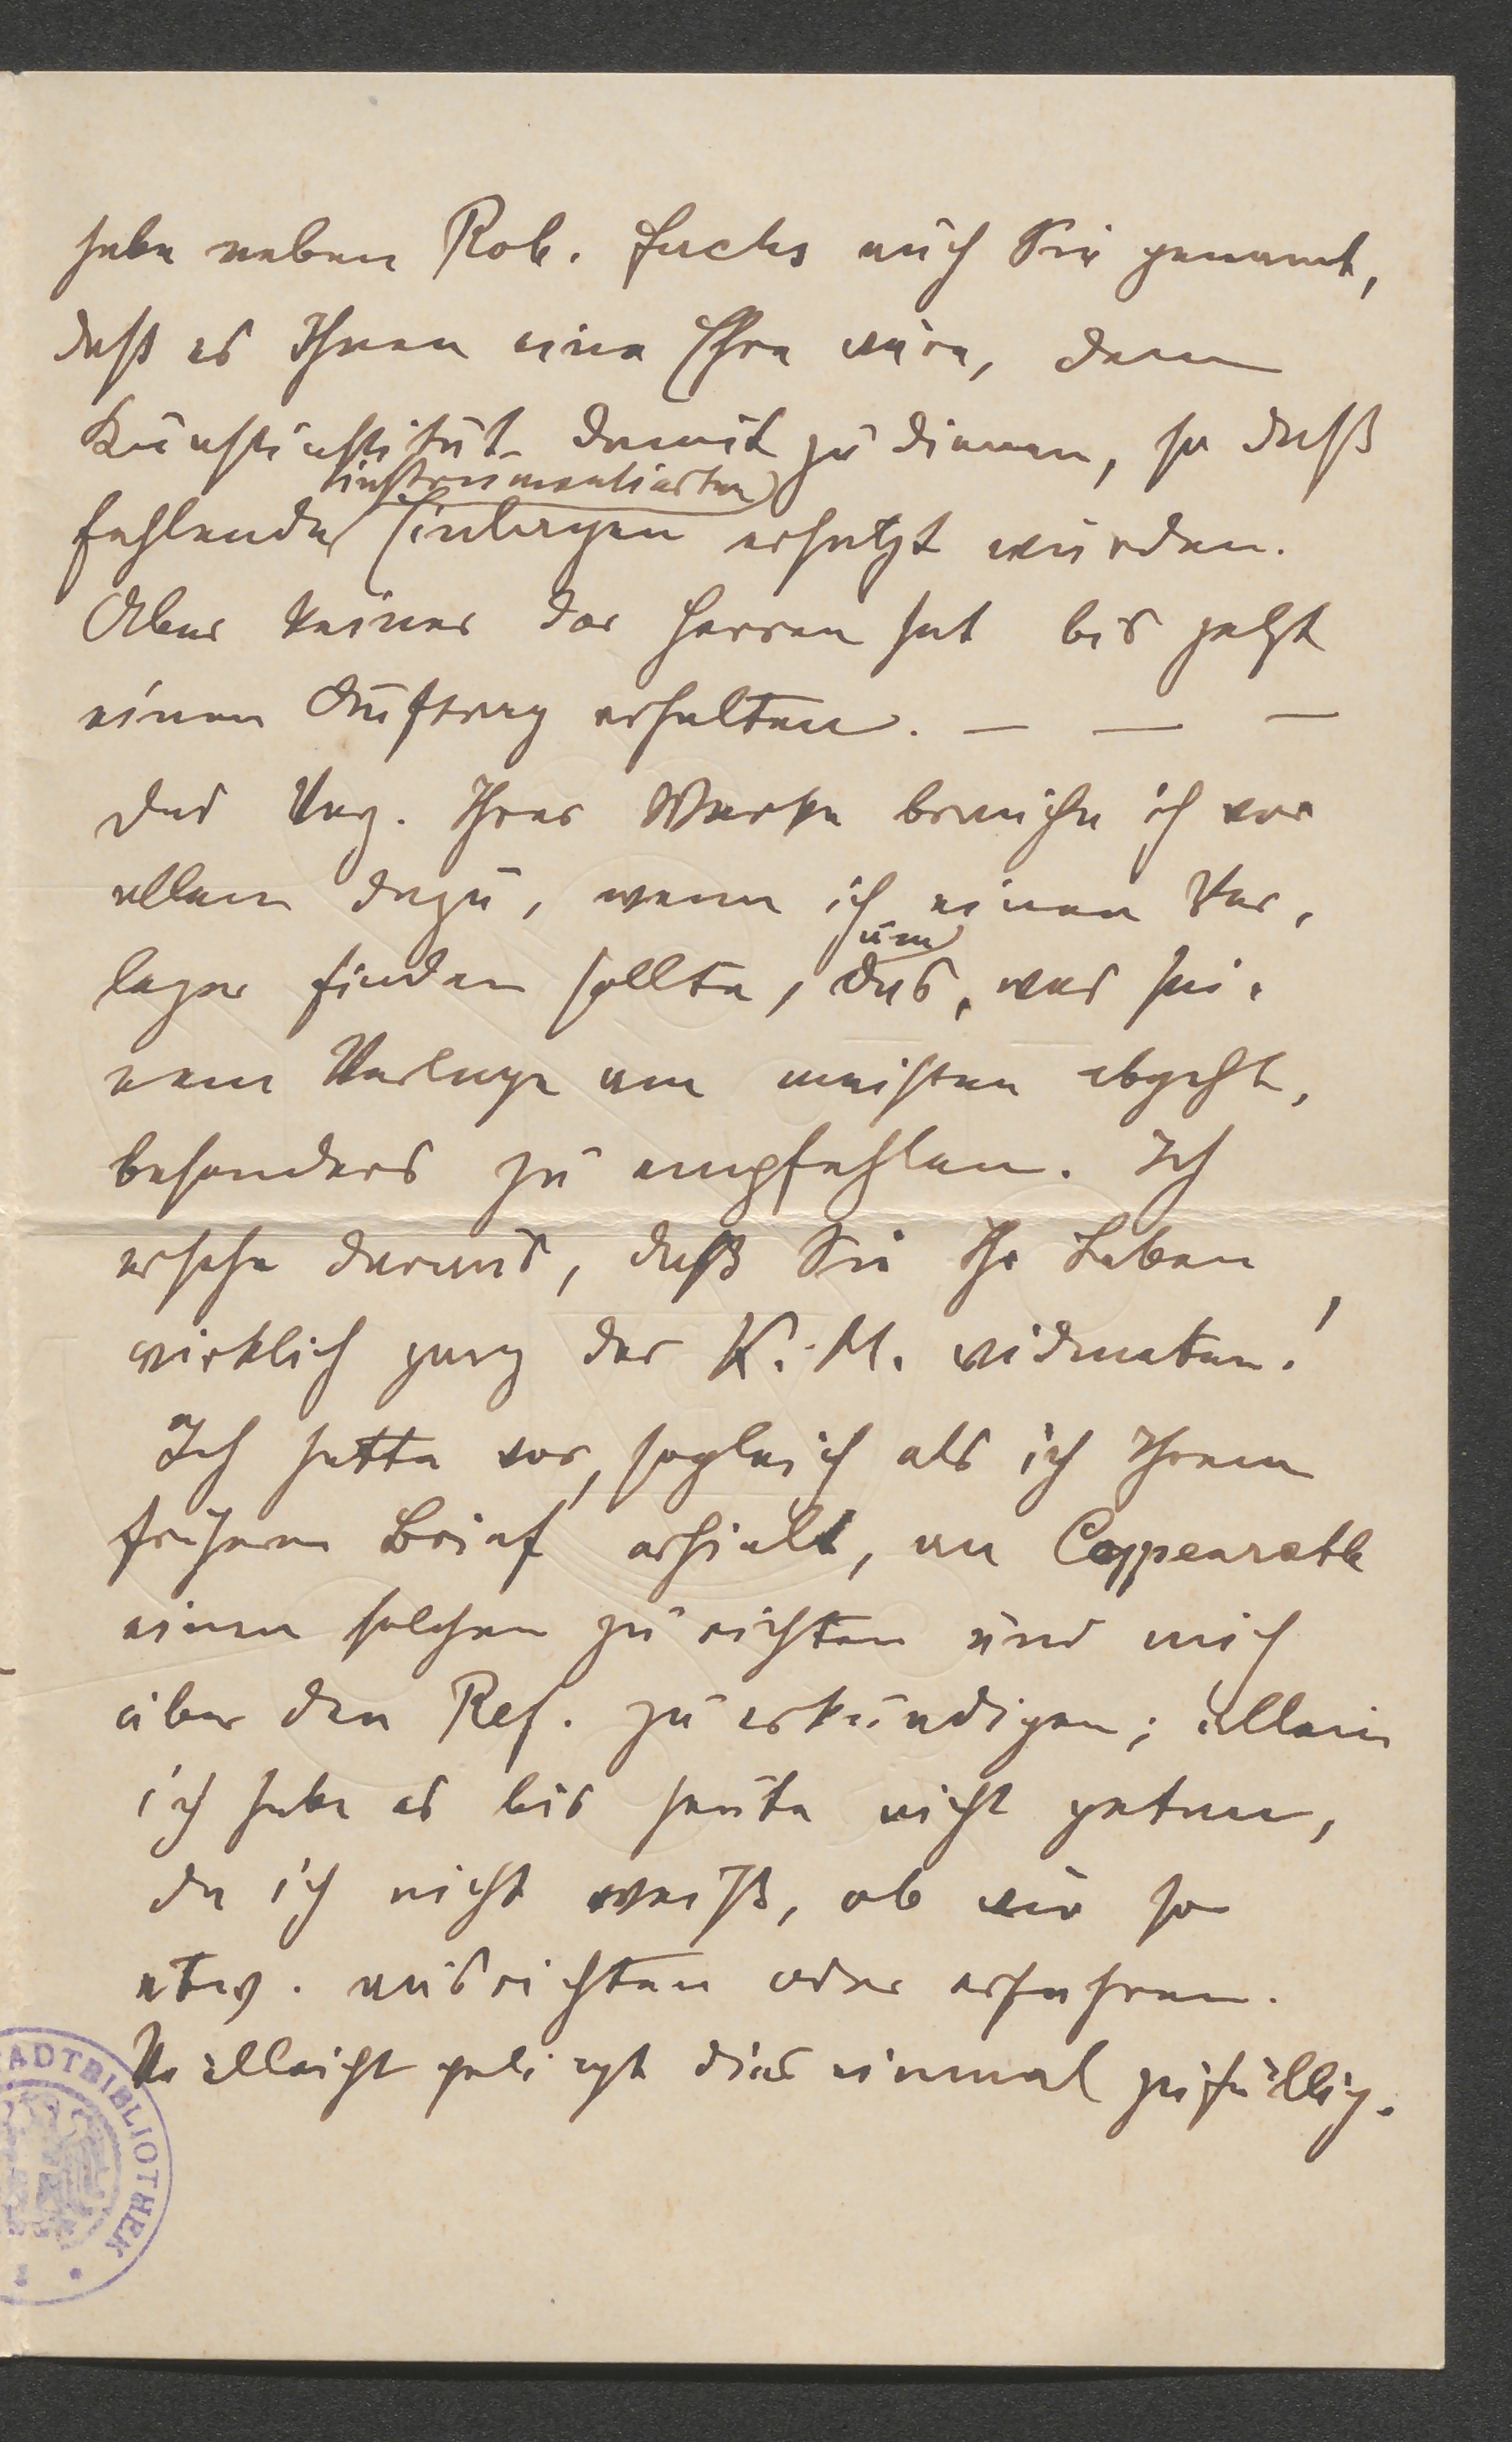 habe neben Rob. Fuchs auch Sie genannt,
daß es Ihnen eine Ehre wäre, dem
Kunstinstitut damit zu dienen, so daß
instrumentierten
fehlende Einlagen ersetzt würden.
Aber keiner der Herren hat bis jetzt
einen Auftrag erhalten. — — —
Das Verz. Ihrer Werke brauche ich vor
allem dazu, wenn ich einen Ver-
um
leger finden sollte, das, was sei-
nem Verlage am meisten abgeht,
besonders zu empfehlen. Ich
ersehe daraus, daß Sie Ihr Leben
wirklich ganz der K. M. widmeten!
Ich hatte vor, sogleich als ich Ihren
früheren Brief erhielt, an Coppenrath
einen solchen zu richten und mich
über den Ref. zu erkundigen; allein
ich habe es bis heute nicht getan,
da ich nicht weiß, ob wir so
etw. ausrichten oder erfahren.
Vielleicht gelingt dies einmal zufällig.
STADTBIBLIOTHEK